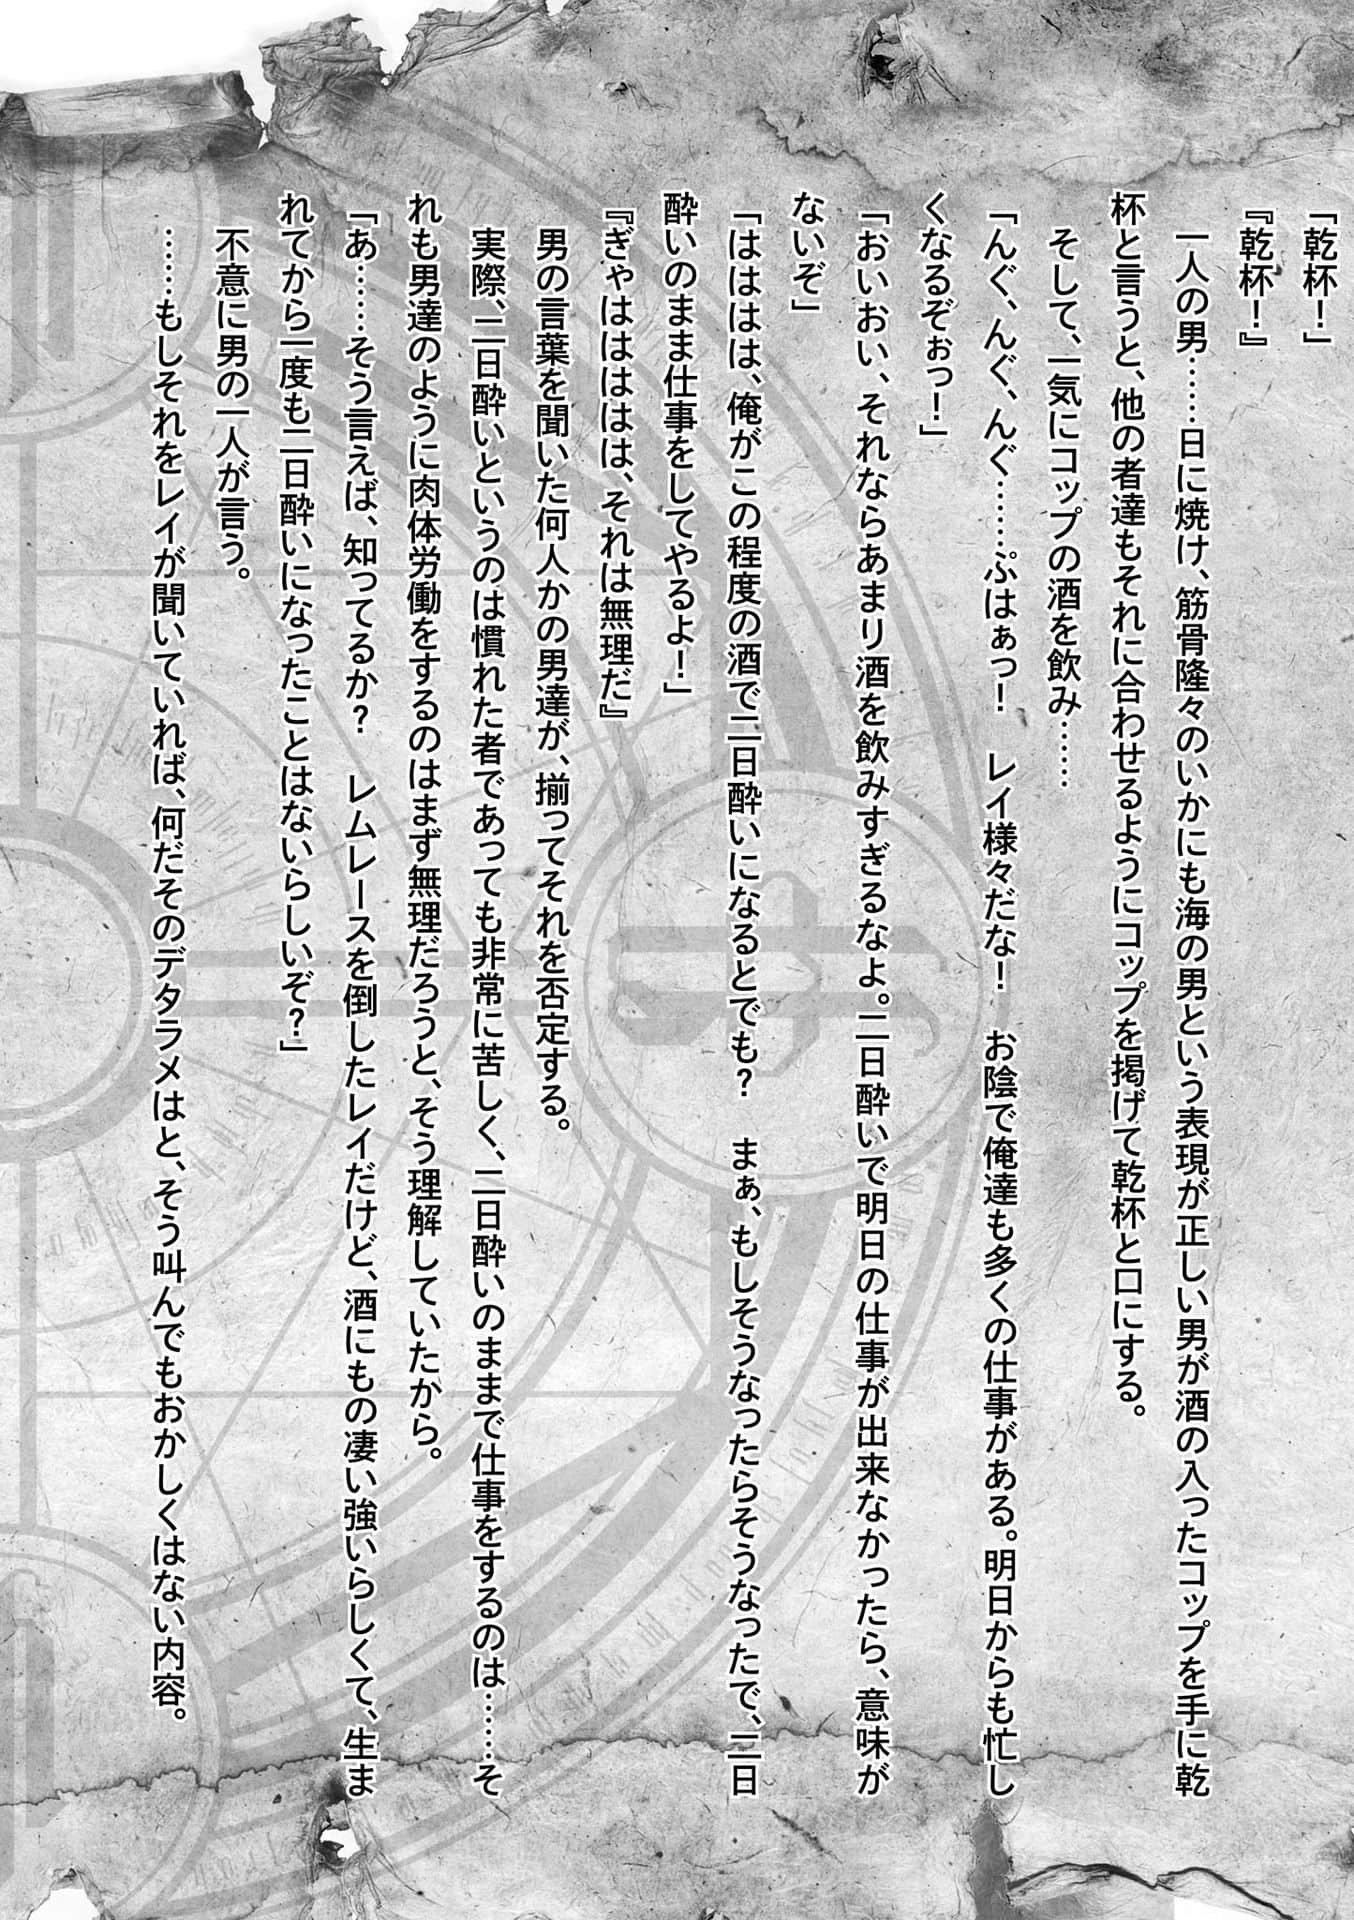 「乾杯！」
『乾杯！』
　一人の男……日に焼け、筋骨隆々のいかにも海の男という表現が正しい男が酒の入ったコップを手に乾
杯と言うと、他の者達もそれに合わせるようにコップを掲げて乾杯と口にする。
　そして、一気にコップの酒を飲み……
「んぐ、んぐ、んぐ……ぷはぁっ！　レイ様々だな！　お陰で俺達も多くの仕事がある。明日からも忙し
くなるぞぉっ！」
「おいおい、それならあまり酒を飲みすぎるなよ。二日酔いで明日の仕事が出来なかったら、意味が
ないぞ」
「はははは、俺がこの程度の酒で二日酔いになるとでも？　まぁ、もしそうなったらそうなったで、二日
酔いのまま仕事をしてやるよ！」
『ぎゃはははははは、それは無理だ』
　男の言葉を聞いた何人かの男達が、揃ってそれを否定する。
　実際、二日酔いというのは慣れた者であっても非常に苦しく、二日酔いのままで仕事をするのは……そ
れも男達のように肉体労働をするのはまず無理だろうと、そう理解していたから。
「あ……そう言えば、知ってるか？　レムレースを倒したレイだけど、酒にもの凄い強いらしくて、生ま
れてから一度も二日酔いになったことはないらしいぞ？」
　不意に男の一人が言う。
　……もしそれをレイが聞いていれば、何だそのデタラメはと、そう叫んでもおかしくはない内容。